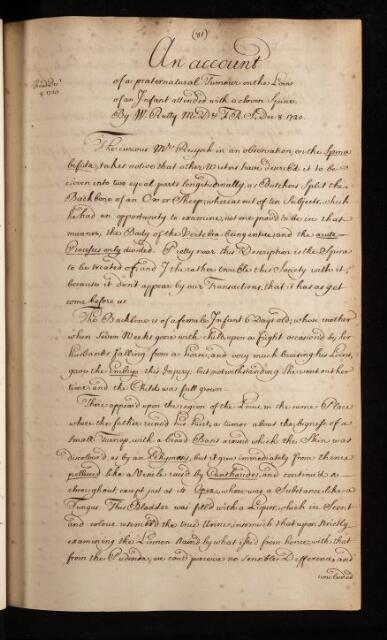 (81)
An account
Read Decr
8. 1720
of a præternatural Tumour on the Loins
of an Infant attended with a cloven Spine.
By W. Rutty M.D. & F.R.S. Dec 8. 1720.
The curious Mr Ruysch in an observation on the Spina
bifida, takes notice that other Writers have describ'd it to be
cloven into two equal parts longitudinally, as Butchers split the
Backbone of an Ox or Sheep; whereas out of ten Subjects, which
he had an opportunity to examine, not one prov'd to be in that
manner, the Body of the Vertebra being entire, and the acute
Processus only divided. Pretty near this Description is the Spina
to be treated of, and I the rather trouble this Society with it,
because it don't appear by our Transactions, that it has as yet
come before us
The Backbone is of a female Infant 6 Days old; whose mother
when Seven Weeks gone with child, upon a fright occasion'd by her
husbands falling from a horse, and very much bruising his Loins,
gave the Embryo this Injury: but notwithstanding She went out her
time, and the Child was full grown.
There appear'd upon the region of the Loins, in the same Place
where the father receiv'd his hurt, a tumor about the bigness of a
small Turnep, with a broad Basis around which the Skin was
discolour'd, as by an Ecchymosis, but it grew immediately from thence
pellucid like a Vesicle rais'd by Cantharides, and continu'd so
throughout except just at its Apex, where was a Substance like a
Fungus. This Bladder was fill'd with a Liquor, which in Scent
and colour resembl'd the true Urine, insomuch that upon strictly
examining the Linnen stain'd by what issu'd from hence, with that
from the Pudenda, we cou'd perceive no sensible Difference, and
concluded